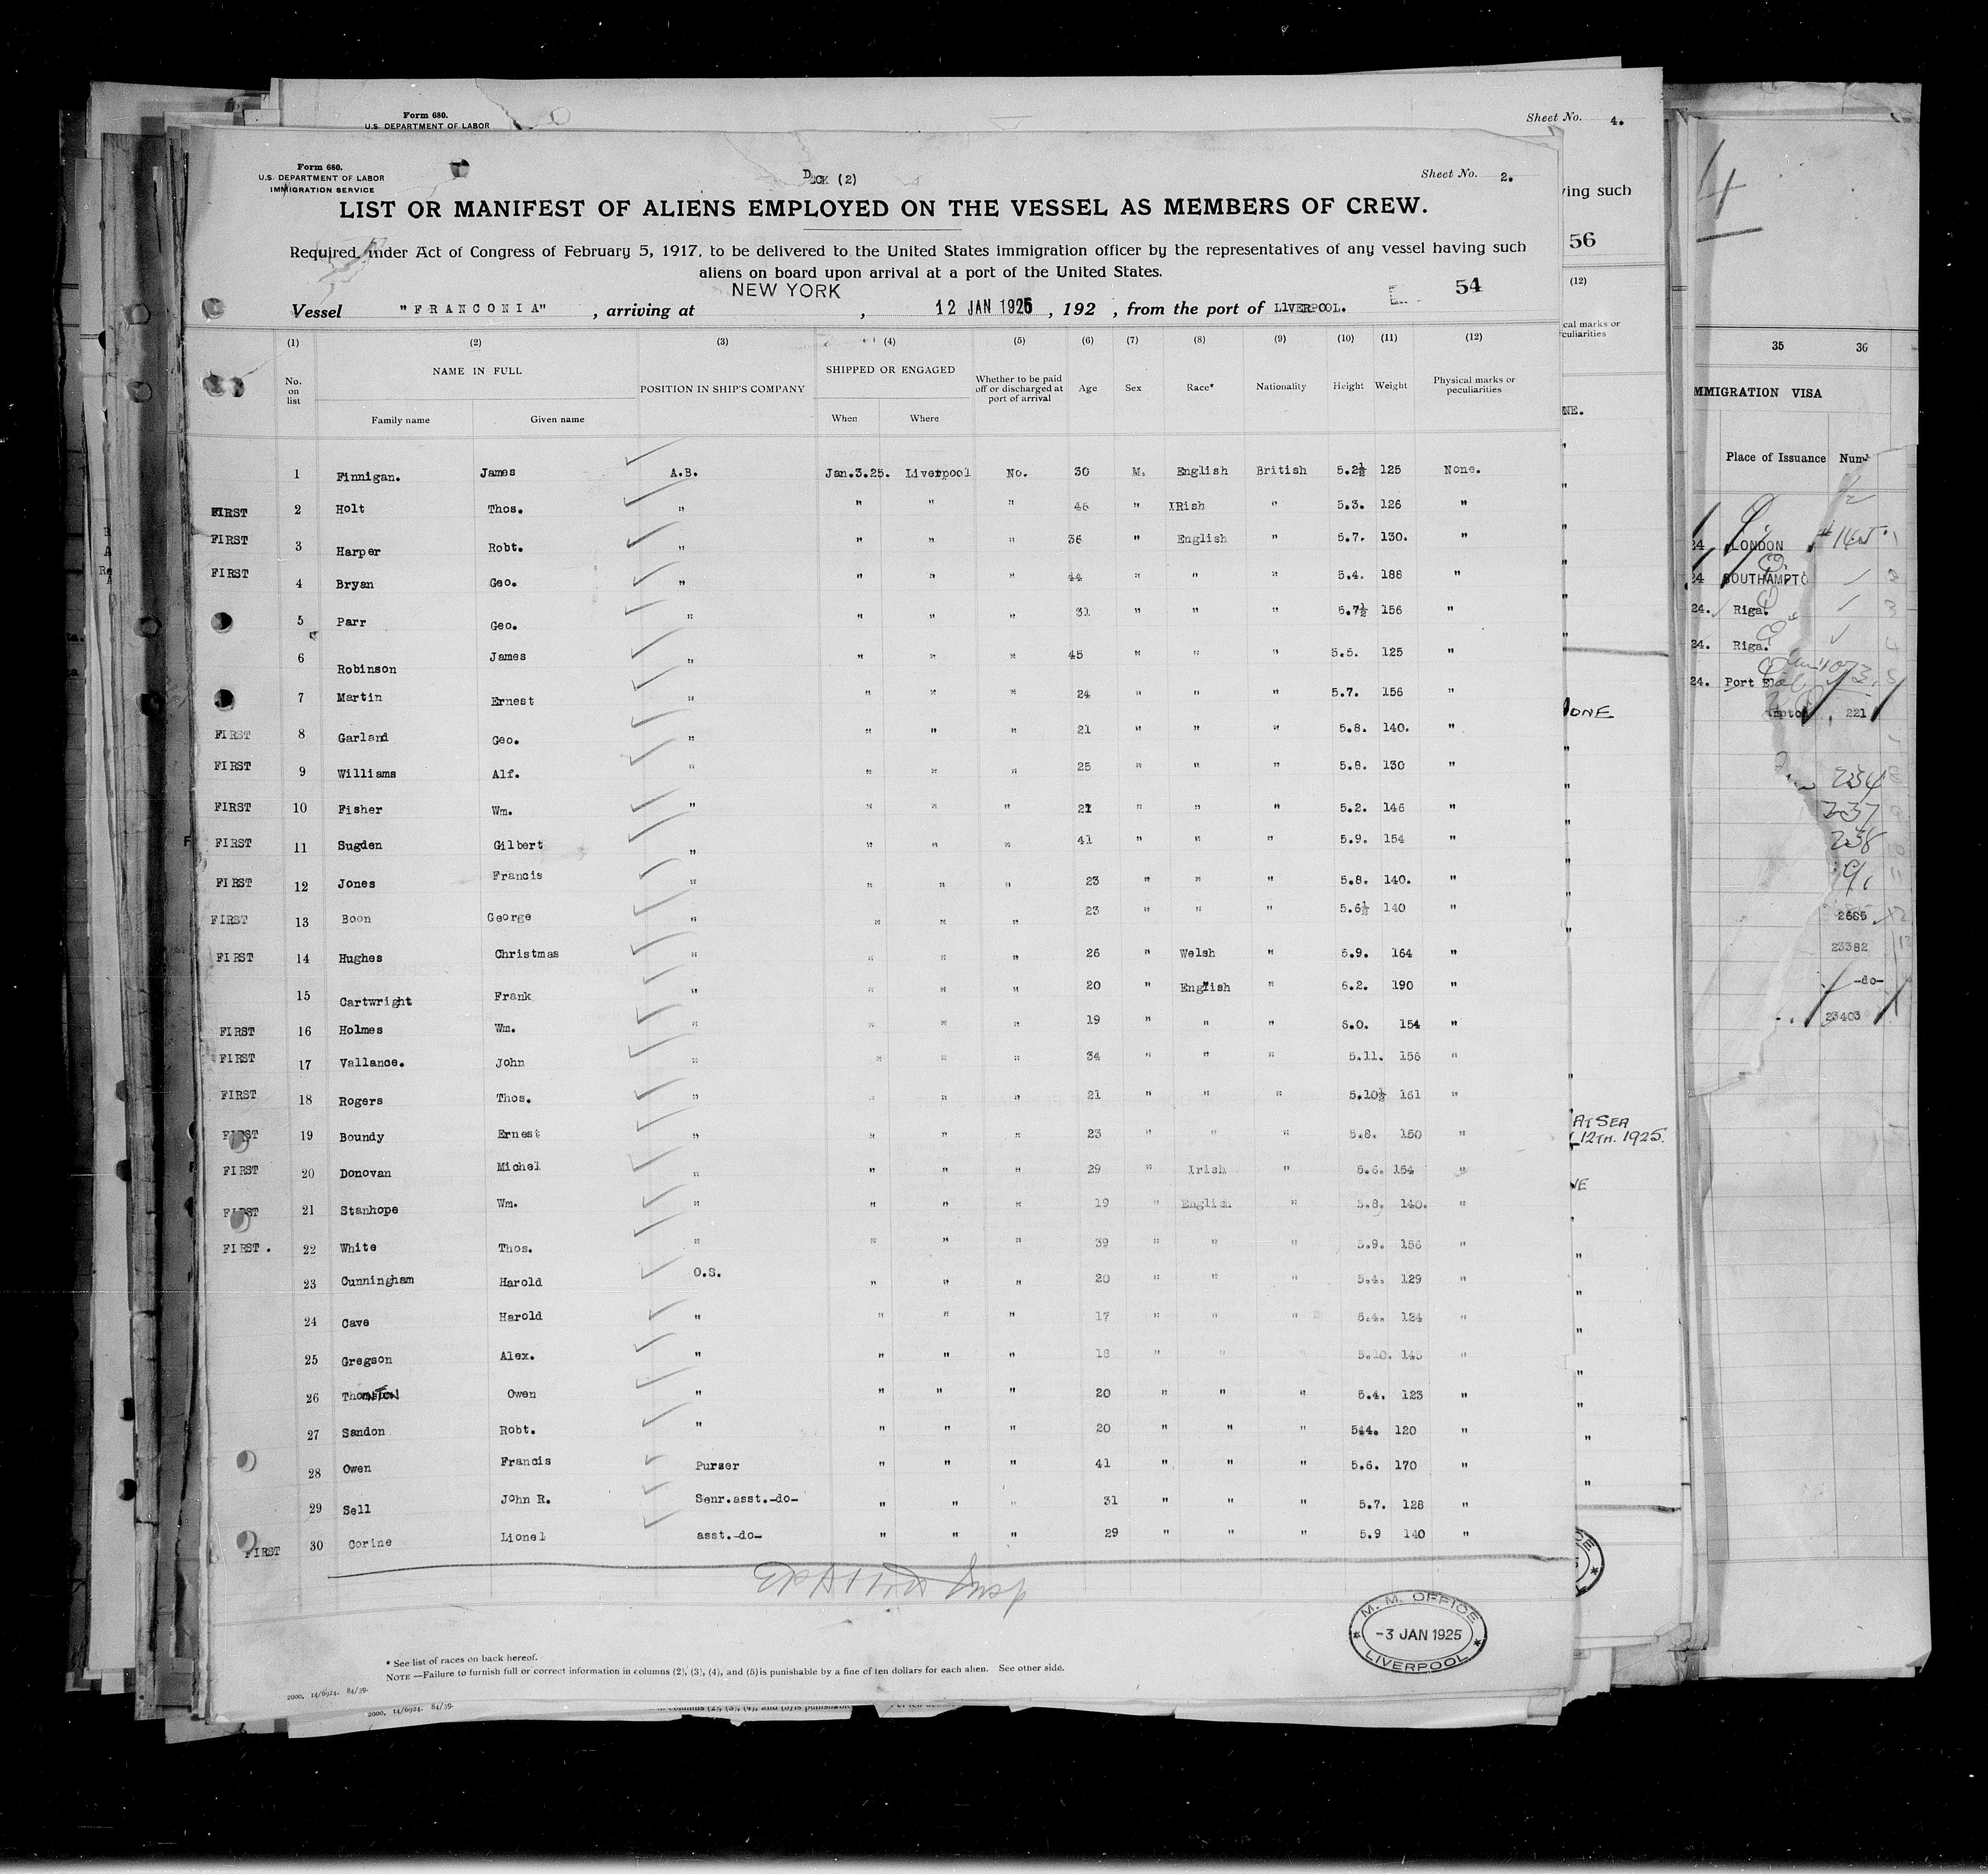 Form 680.
U.S. DEPARTMENT OF LABOR
Sheet No. 4.
Form 680.
U.S. DEPARTMENT OF LABOR
IMMIGRATION SERVICE
Deck (2)
Sheet No. 2.
LIST OR MANIFEST OF ALIENS EMPLOYED ON THE VESSEL AS MEMBERS OF CREW.
Required under Act of Congress of February 5, 1917, to be delivered to the United States immigration officer by the representatives of any vessel having such
aliens on board upon arrival at a port of the United States.
NEW YORK
54
Vessel "FRANCONIA", arriving at , 12 JAN 1925, 192 , from the port of LIVERPOOL.
(1) (2) (3) (4) (5) (6) (7) (8) (9) (10) (11) (12)
No. on list NAME IN FULL POSITION IN SHIP'S COMPANY SHIPPED OR ENGAGED Whether to be paid off or discharged at port of arrival Age Sex Race* Nationality Height Weight Physical marks or peculiarities
Family name Given name When Where
1 Finnigan. James A.B. Jan.3.25. Liverpool No. 30 M. English British 5.2½ 125 None.
FIRST 2 Holt Thos. " " " " 46 " IRish " 5.3. 126 "
FIRST 3 Harper Robt. " " " " 36 " English " 5.7. 130. "
FIRST 4 Bryan Geo. " " " " 44 " " " 5.4. 188 "
5 Parr Geo. " " " " 31 " " " 5.7½ 156 "
6 Robinson James " " " " 45 " " " 5.5. 125 "
7 Martin Ernest " " " " 24 " " " 5.7. 156 "
FIRST 8 Garland Geo. " " " " 21 " " " 5.8. 140. "
FIRST 9 Williams Alf. " " " " 25 " " " 5.8. 130 "
FIRST 10 Fisher Wm. " " " " 21 " " " 5.2. 146 "
FIRST 11 Sugden Gilbert " " " " 41 " " " 5.9. 154 "
FIRST 12 Jones Francis " " " " 23 " " " 5.8. 140. "
FIRST 13 Boon George " " " " 23 " " " 5.6½ 140 "
FIRST 14 Hughes Christmas " " " " 26 " Welsh " 5.9. 164 "
15 Cartwright Frank " " " " 20 " English " 6.2. 190 "
FIRST 16 Holmes Wm. " " " " 19 " " " 6.0. 154 "
FIRST 17 Vallance. John " " " " 34 " " " 5.11. 156 "
FIRST 18 Rogers Thos. " " " " 21 " " " 5.10½ 161 "
FIRST 19 Boundy Ernest " " " " 23 " " " 5.8. 150 "
FIRST 20 Donovan Michel " " " " 29 " Irish " 5.6. 154 "
FIRST 21 Stanhope Wm. " " " " 19 " English " 5.8. 140. "
FIRST. 22 White Thos. " " " " 39 " " " 5.9. 156 "
23 Cunningham Harold O.S. " " " 20 " " " 5.4. 129 "
24 Cave Harold " " " " 17 " " " 5.4. 124 "
25 Gregson Alex. " " " " 18 " " " 5.10. 145 "
26 Thornton Owen " " " " 20 " " " 5.4. 123 "
27 Sandon Robt. " " " " 20 " " " 544. 120 "
28 Owen Francis Purser " " " 41 " " " 5.6. 170 "
29 Sell John R. Senr.asst.-do- " " " 31 " " " 5.7. 128 "
FIRST 30 Corine Lionel asst.-do- " " " 29 " " " 5.9 140 "
M. M. OFFICE
-3 JAN 1925
LIVERPOOL
* See list of races on back hereof.
NOTE —Failure to furnish full or correct information in columns (2), (3), (4), and (5) is punishable by a fine of ten dollars for each alien. See other side.
2000. 14/6924. 84/59.
2000. 14/6924. 84/59.
ving such
56
(12)
cal marks or
culiarities
NE.
AT SEA
12TH. 1925.
35 36
MMIGRATION VISA
Place of Issuance
24 LONDON
24 SOUTHAMPTO
24. Riga.
24. Riga.
24. Port
221
234
237
238
2685
23382
-do-
23403